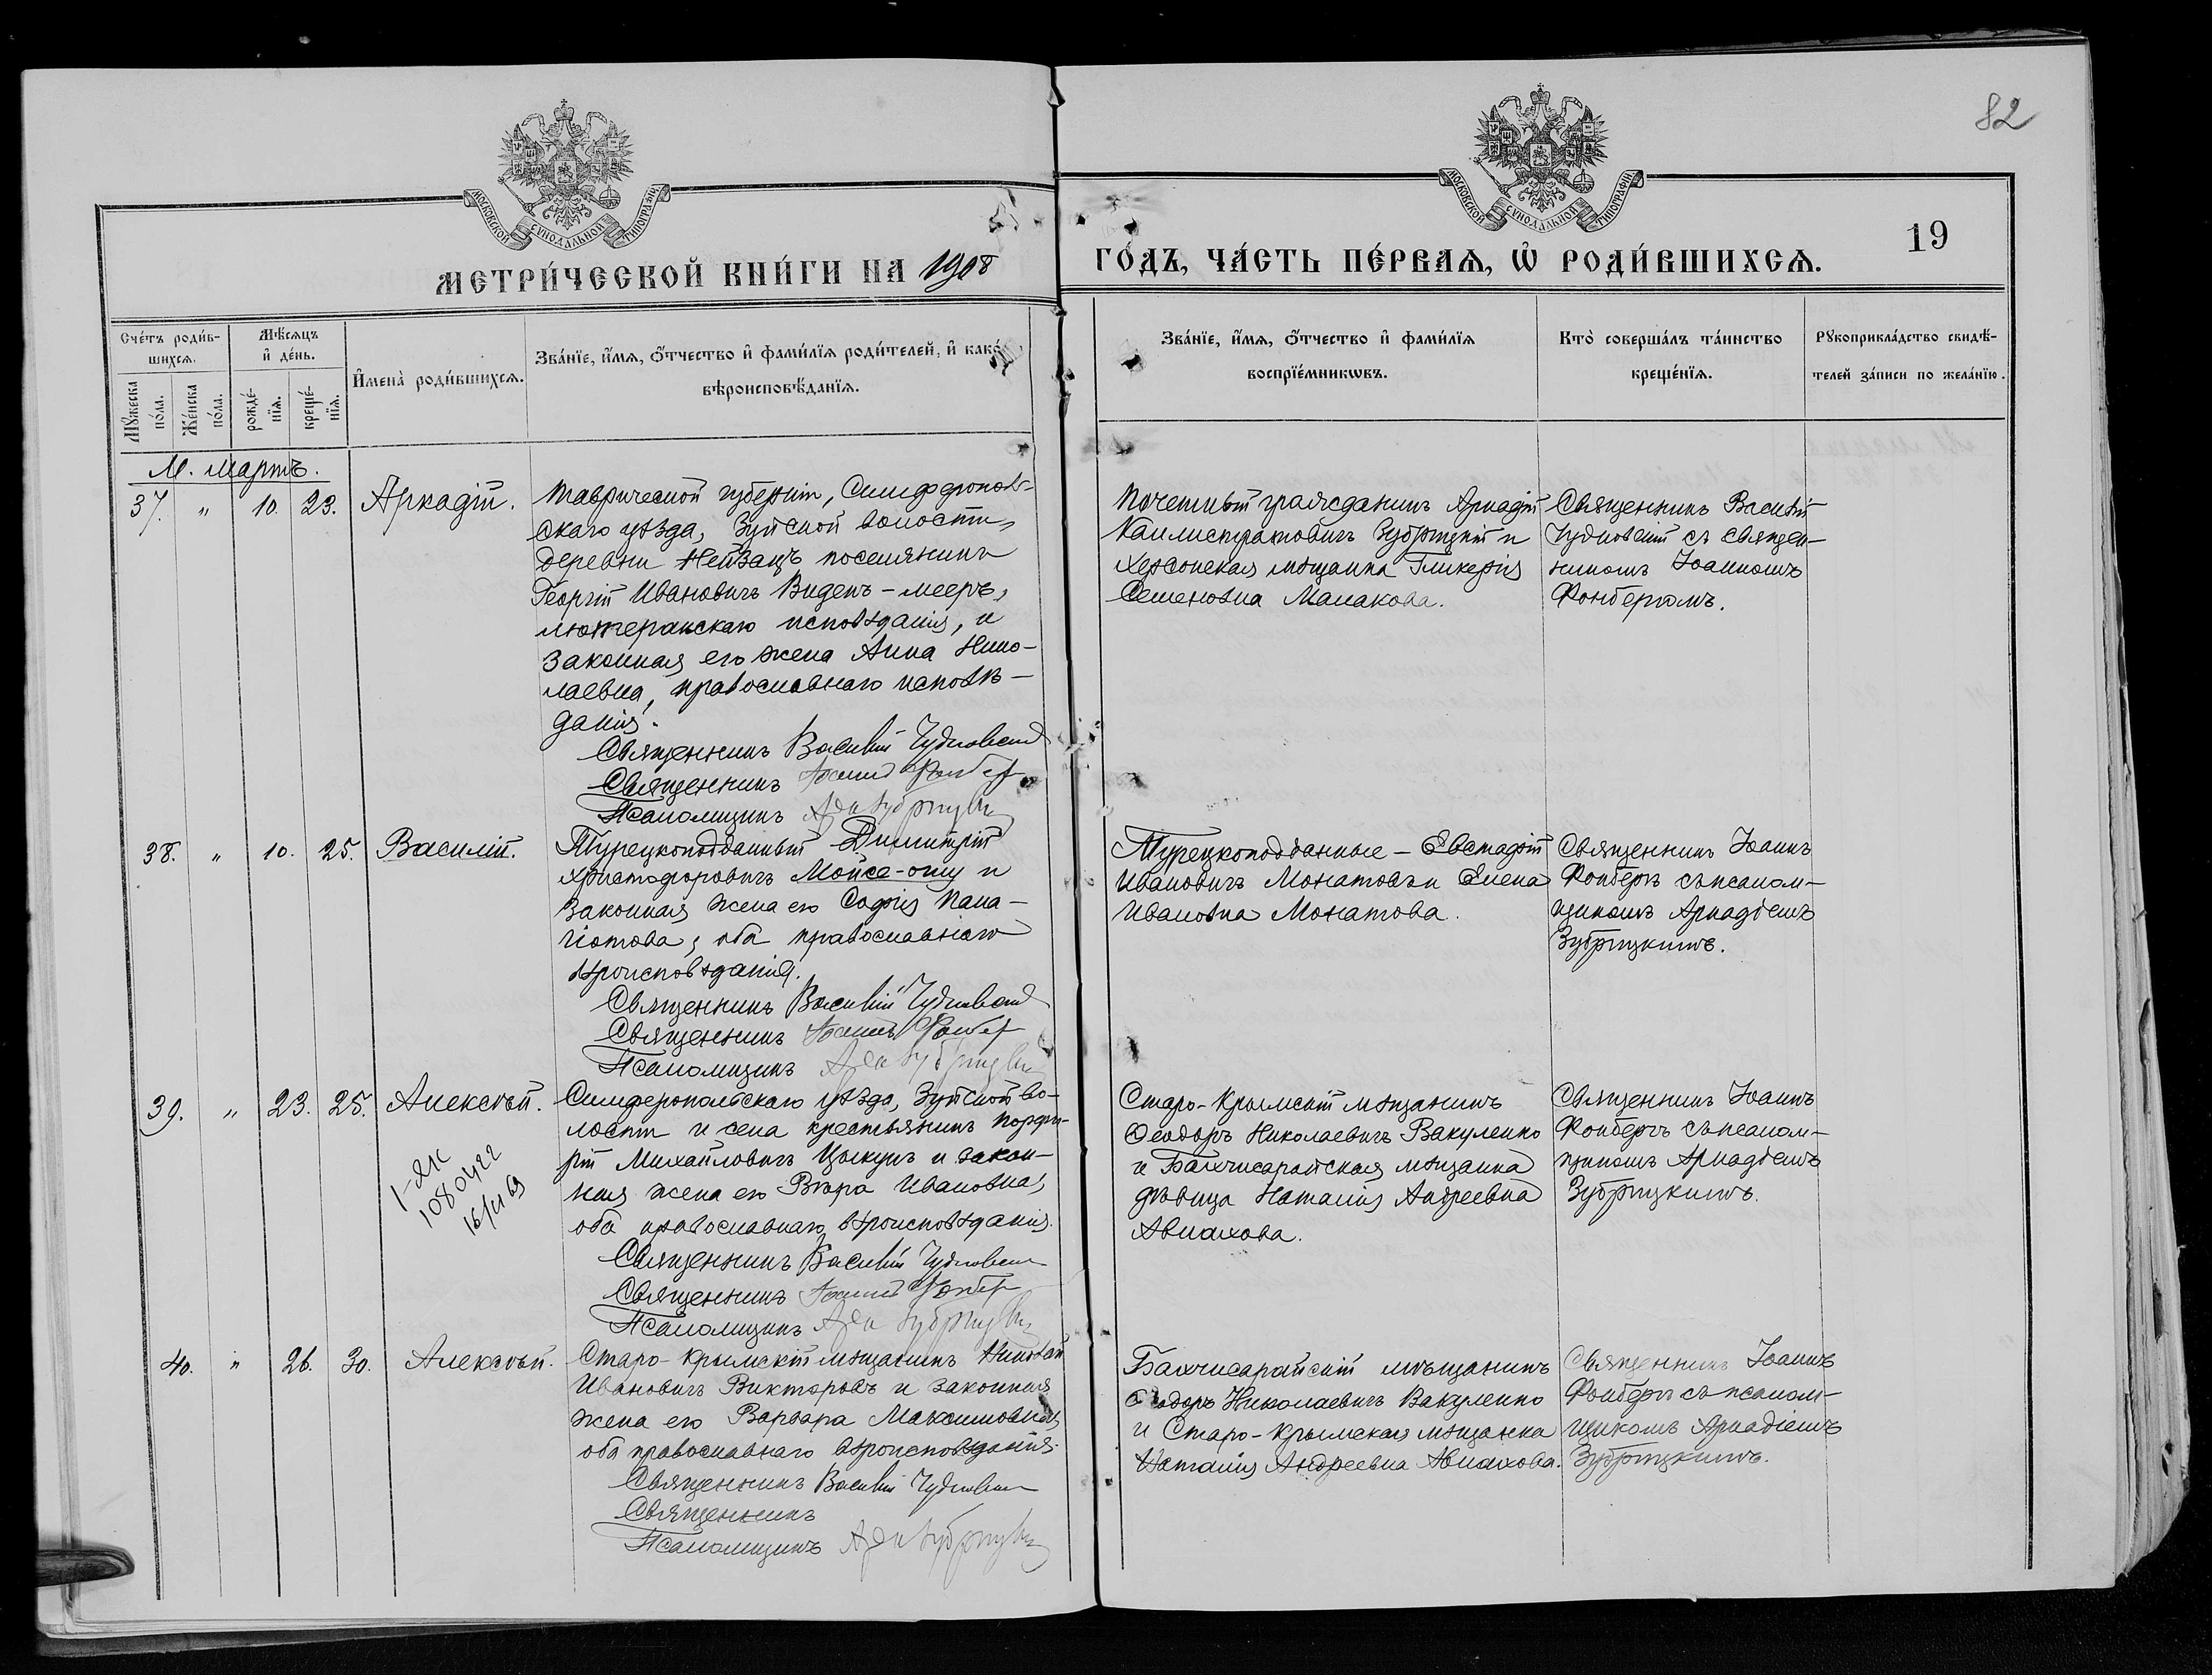 82
МОСКОВСКОЙ СѴНОДАЛЬНОЙ ТИПОГРАФІИ
МОСКОВСКОЙ СѴНОДАЛЬНОЙ ТИПОГРАФІИ
19
МЕТРИ́ЧЕСКОЙ КНИ́ГИ НА 1908
ГО́ДЪ, ЧА́СТЬ ПЕ́РВАЯ, Ѡ҆ РОДИ́ВШИХСЯ.
Сче́тъ роди́в-
шихся.
Мѣ́сяцъ
и҆ де́нь.
Мꙋ́жеска
по́ла.
Же́нска
по́ла.
рожде́-
нїя.
креще́-
нїя.
И҆мена̀ роди́вшихся.
Зва́нїе, и҆́мя, ѻ҆́тчество и҆ фами́лїя роди́телей, и҆ како́
вѣроисповѣ́данїя.
Зва́нїе, и҆́мя, ѻ҆́тчество и҆ фами́лїя
воспрїе́мникѡвъ.
Кто̀ соверша́лъ та́инство
креще́нїя.
Рꙋкоприкла́дство свидѣ́-
телей за́писи по жела́нїю.
М. Мартъ.
37. " 10. 23. Аркадій.
Таврической губерніи, Симферополь-
скаго уѣзда, Зуйской волости,
деревни Нейзацъ поселянинъ
Георгій Ивановичъ Виденъ-мееръ,
лютеранскаго исповѣданія, и
законная его жена Анна Нико-
лаевна, православнаго исповѣ-
данія.
Священникъ Василій Чудновскій
Священникъ Іоаннъ Фонберъ
Псаломщикъ Арк Зубрицкій
Почетный гражданинъ Аркадій
Каллистратовичъ Зубрицкій и
Херсонская мѣщанка Гликерія
Семеновна Малакова.
Священникъ Василій
Чудновскій съ священ-
никомъ Іоанномъ
Фонберомъ.
38. " 10. 25. Василій.
Турецкоподданный Димитрій
Христофоровичъ Мойсе-оглу и
законная жена его Софія Пана-
гіотова, оба православнаго
вѣроисповѣданія.
Священникъ Василій Чудновскій
Священникъ Іоаннъ Фонберъ
Псаломщикъ Арк Зубрицкій
Турецкоподданные – Евстафій
Ивановичъ Монатовъ и Елена
Ивановна Монатова.
Священникъ Іоаннъ
Фонберъ съ псалом-
щикомъ Аркадіемъ
Зубрицкимъ.
39. " 23. 25. Алексѣй.
1-ЯК
1080422
Симферопольскаго уѣзда, Зуйской во-
лости и села крестьянинъ Порфи-
рій Михайловичъ Цыкунъ и закон-
ная жена его Вѣра Ивановна,
оба православнаго вѣроисповѣданія.
Священникъ Василій Чудновскій
Священникъ Іоаннъ Фонберъ
Псаломщикъ Арк Зубрицкій
Старо-Крымскій мѣщанинъ
Ѳеодоръ Николаевичъ Вакуленко
и Бахчисарайская мѣщанка
дѣвица Наталія Андреевна
Авлахова.
Священникъ Іоаннъ
Фонберъ съ псалом-
щикомъ Аркадіемъ
Зубрицкимъ.
40. " 26. 30. Алексѣй.
Старо-Крымскій мѣщанинъ Николай
Ивановичъ Викторовъ и законная
жена его Варвара Максимовна,
оба православнаго вѣроисповѣданія.
Священникъ Василій Чудновскій
Священникъ
Псаломщикъ Арк Зубрицкій
Бахчисарайскій мѣщанинъ
Ѳеодоръ Николаевичъ Вакуленко
и Старо-Крымская мѣщанка
Наталія Андреевна Авлахова.
Священникъ Іоаннъ
Фонберъ съ псалом-
щикомъ Аркадіемъ
Зубрицкимъ.